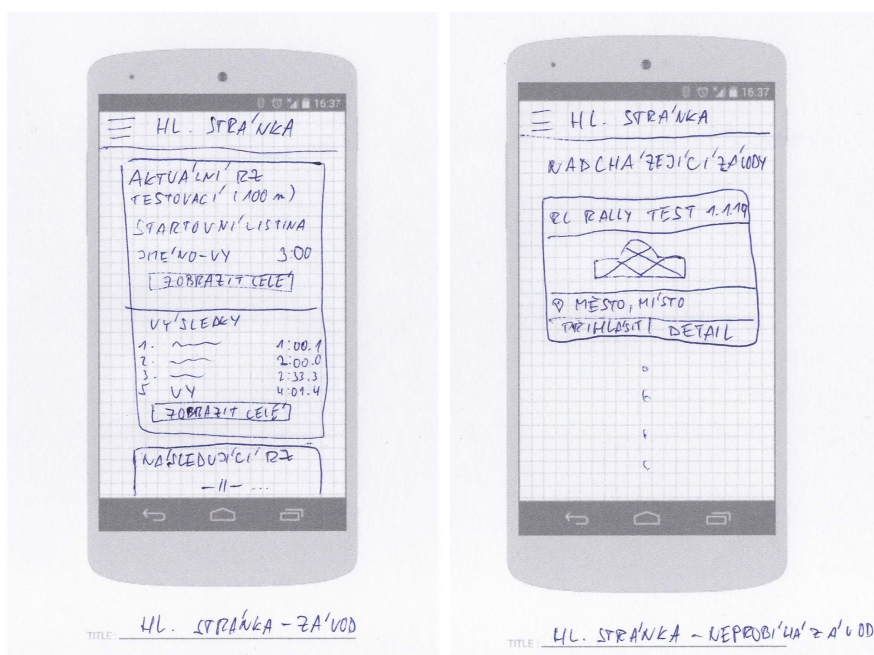 16:37
HL. STRÁNKA
AKTUÁLNÍ RZ
TESTOVACÍ (100 m)
STARTOVNÍ LISTINA
JMÉNO-VY 3:00
ZOBRAZIT CELÉ
VÝSLEDKY
1. 1:00.1
2. 2:00.0
3. 2:33.3
5 VY 4:01.4
ZOBRAZIT CELÉ
NÁSLEDUJÍCÍ RZ
-||- ...
TITLE: HL. STRÁNKA - ZÁVOD
16:37
HL. STRÁNKA
NADCHÁZEJÍCÍ ZÁVODY
RC RALLY TEST 1.1.19
MĚSTO, MÍSTO
PŘIHLÁSIT DETAIL
TITLE: HL. STRÁNKA - NEPROBÍHÁ ZÁVOD